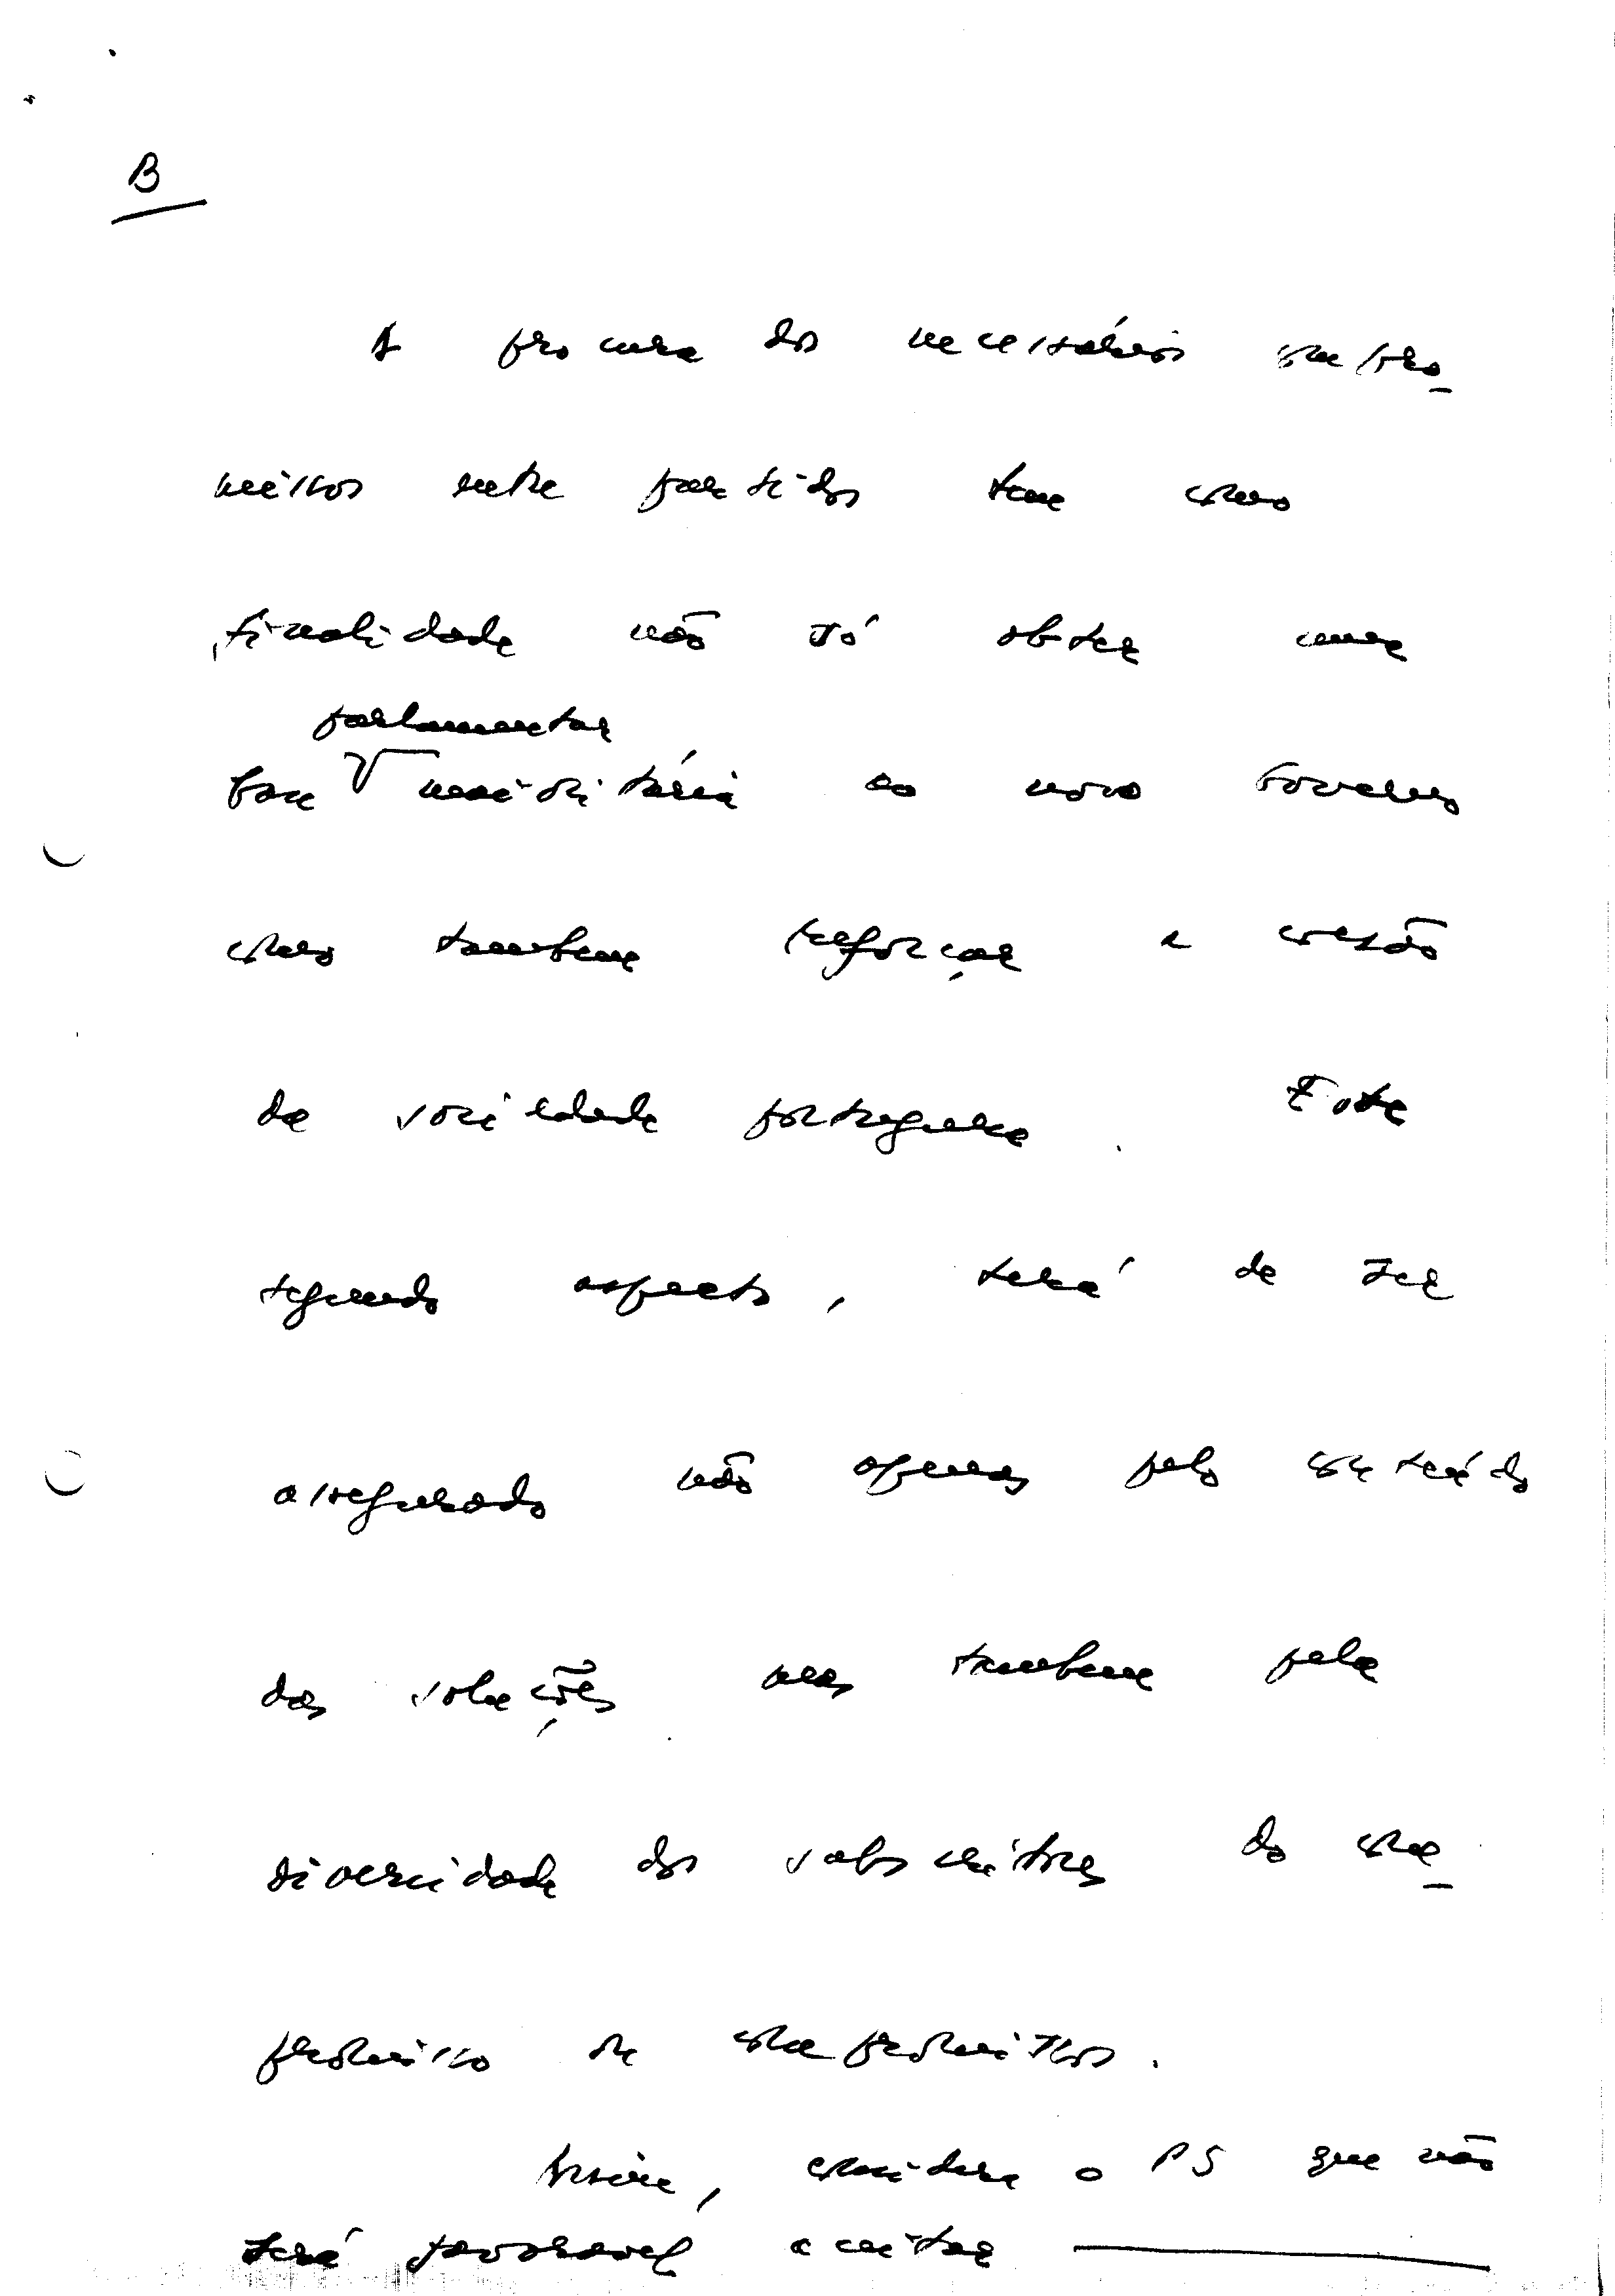 B
A procura dos necessários compro-
missos entre partidos tem como
finalidade não só obter uma
parlamentar
base maioritária ao novo Governo
como tambem reforçar a coesão
da sociedade portuguesa. Este
segundo aspecto, terá de ser
assegurado não apenas pelo conteúdo
das soluções mas tambem pela
diversidade dos subscritores do com-
promisso ou compromissos.
Assim, considera o PS que não
será favoravel